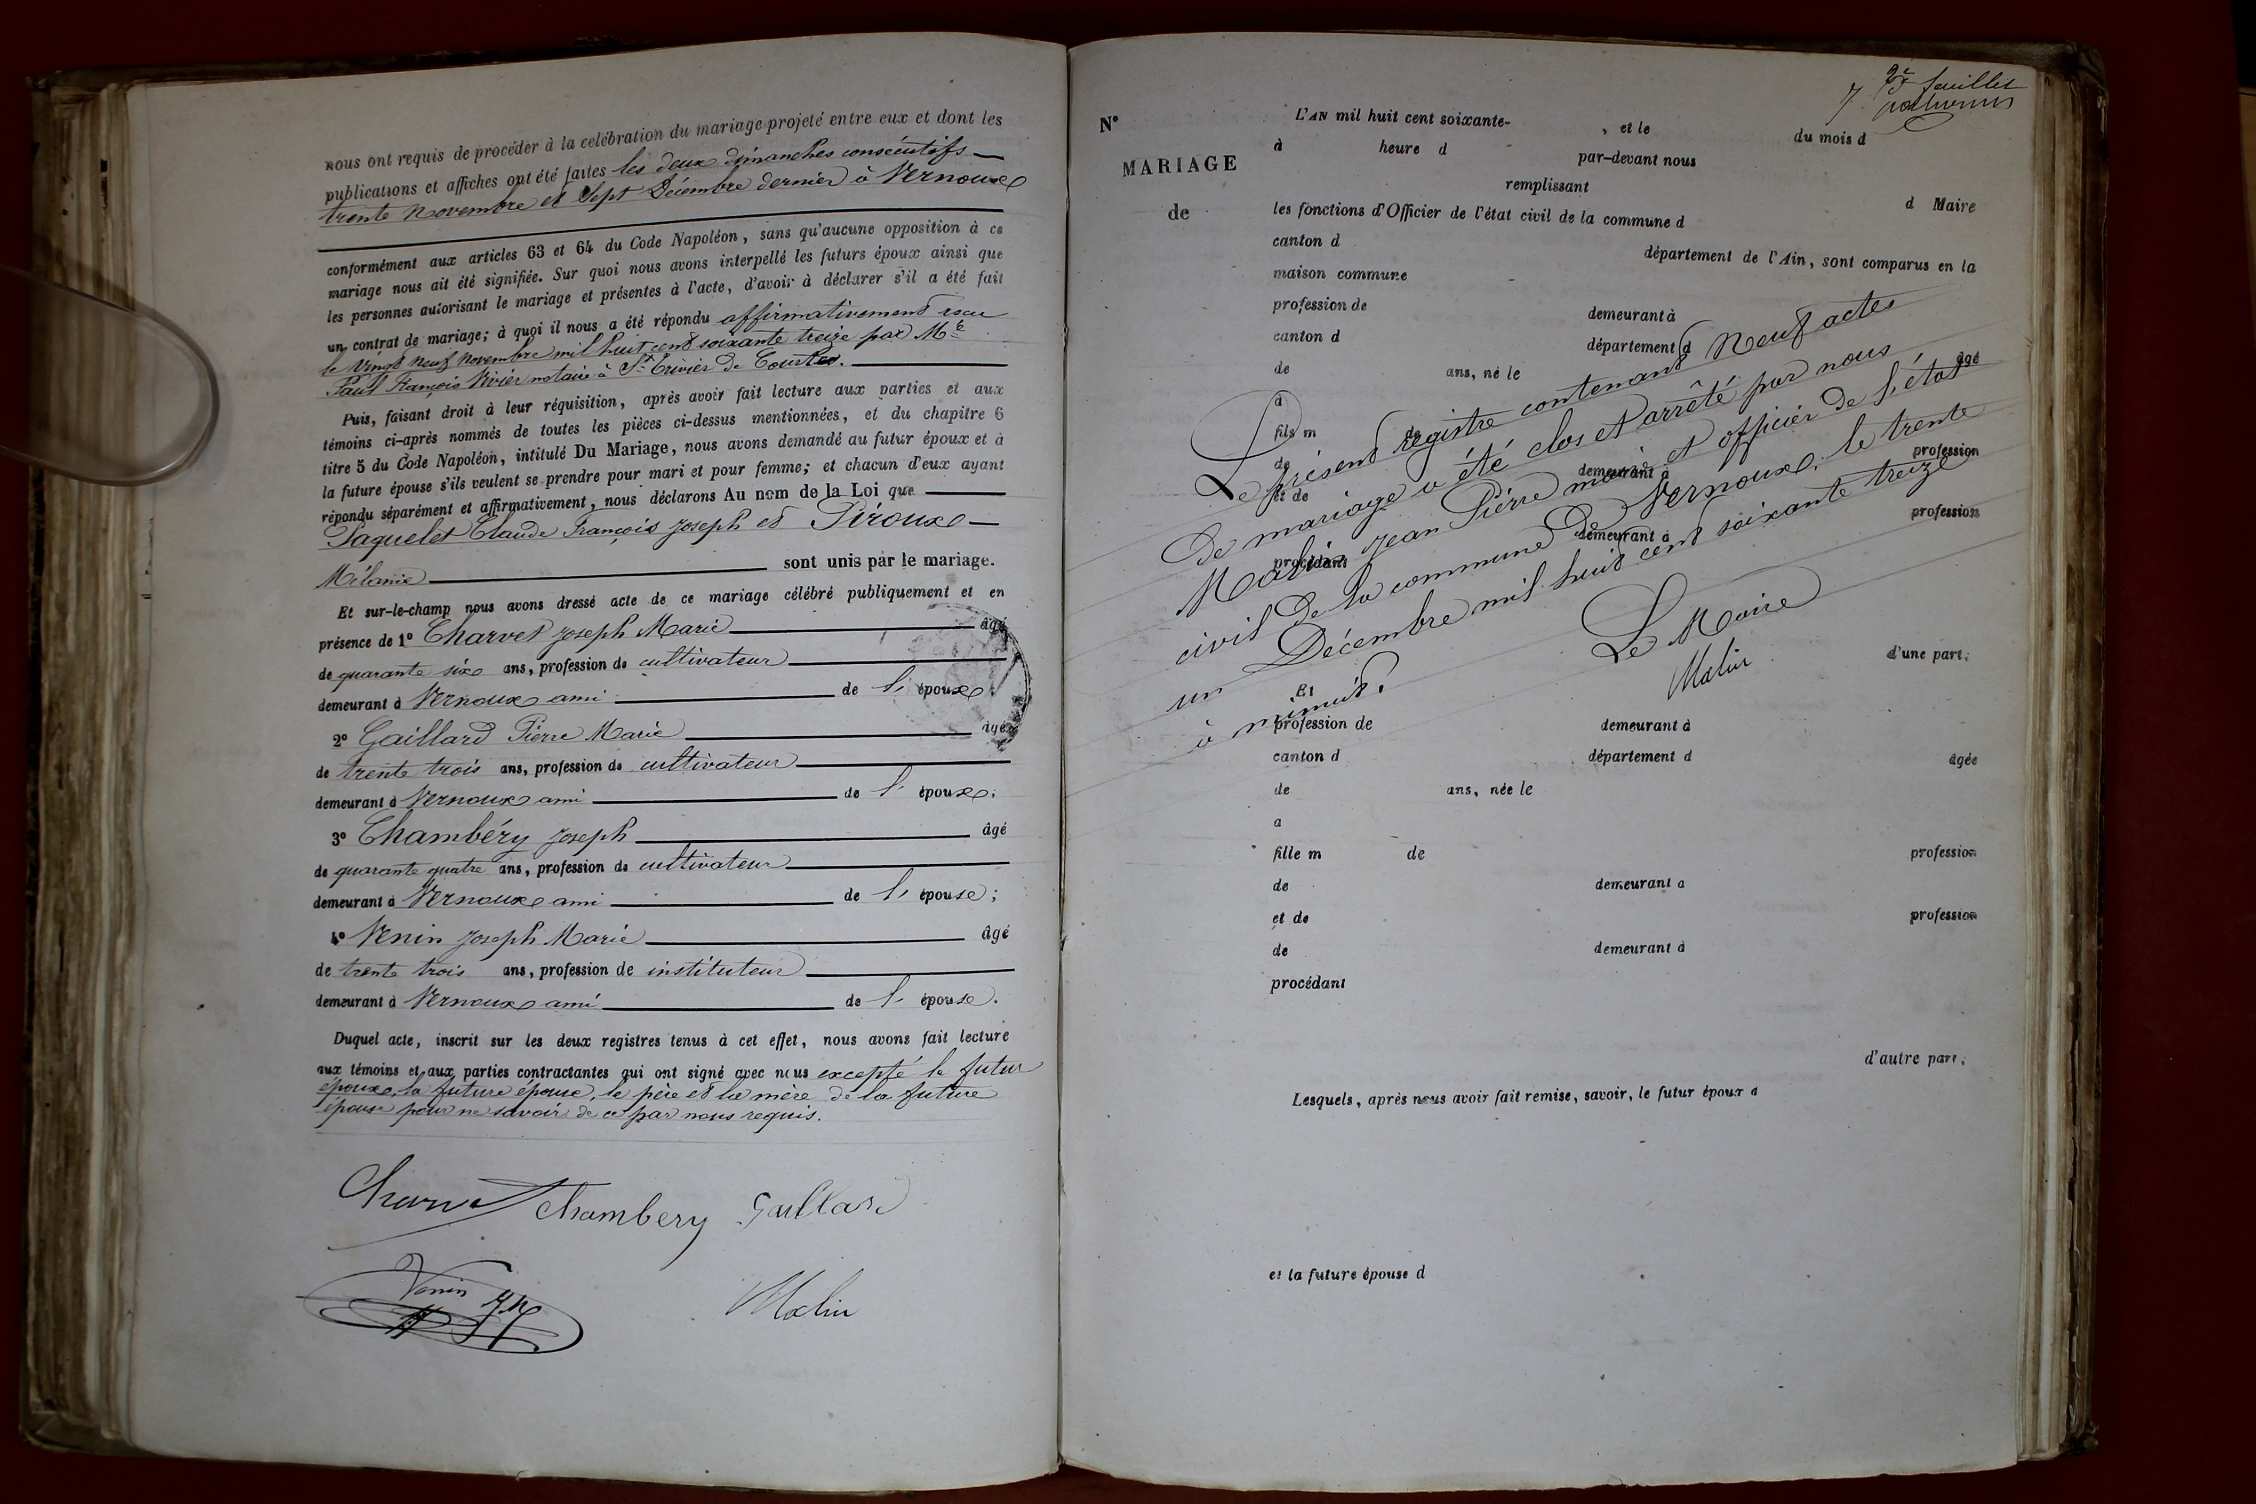 nous ont requis de procéder à la celébration du mariage projeté entre eux et dont les
publications et affiches ont été faites les deux dimanches consécutifs
trente Novembre et Sept Décembre dernier à Vernoux
conformément aux articles 63 et 64 du Code Napoléon, sans qu'aucune opposition à ce
mariage nous ait été signifiée. Sur quoi nous avons interpellé les futurs époux ainsi que
les personnes autorisant le mariage et présentes à l'acte, d'avoir à déclarer s'il a été fait
un contrat de mariage; à quoi il nous a été répondu affirmativement reçu
le vingt neuf Novembre mil huit cent soixante treize par Me
Paul François Vivier notaire à St Trivier de Courtes.
Puis, faisant droit à leur réquisition, après avoir fait lecture aux parties et aux
témoins ci-après nommés de toutes les pièces ci-dessus mentionnées, et du chapitre 6
titre 5 du Code Napoléon, intitulé Du Mariage, nous avons demandé au futur époux et à
la future épouse s'ils veulent se prendre pour mari et pour femme; et chacun d'eux ayant
répondu séparément et affirmativement, nous déclarons Au nom de la Loi que
Paquelet Claude François Joseph et Piroux
Mélanie sont unis par le mariage.
Et sur-le-champ nous avons dressé acte de ce mariage célébré publiquement et en
présence de 1° Charvet Joseph Marie âgé
de quarante six ans, profession de cultivateur
demeurant à Vernoux ami de l' époux;
2° Gaillard Pierre Marie âgé
de trente trois ans, profession de cultivateur
demeurant à Vernoux ami de l' époux;
3° Chambéry Joseph âgé
de quarante quatre ans, profession de cultivateur
demeurant à Vernoux ami de l' épouse;
4° Venin Joseph Marie âgé
de trente trois ans, profession de instituteur
demeurant à Vernoux ami de l' épouse.
Duquel acte, inscrit sur les deux registres tenus à cet effet, nous avons fait lecture
aux témoins et aux parties contractantes qui ont signé avec nous excepté le futur
époux, la future épouse, le père et la mère de la future
épouse pour ne savoir de ce par nous requis.
Charvet Chambery Gaillard
Venin J.M.
Malin
7 feuillet
N°
MARIAGE
de
L'AN mil huit cent soixante- , et le du mois d
à heure d par-devant nous
remplissant d Maire
les fonctions d'Officier de l'état civil de la commune d
canton d département de l'Ain, sont comparus en la
maison commune
profession de demeurant à
canton d département d
de ans, né le âgé
a
fils m de
de demeurant à profession
et de
demeurant à profession
procédant
Le présent registre contenant Neuf actes
De mariage a été clos et arrêté par nous
Malin Jean Pierre maire et officier de l'état
civil De la commune De Vernoux, le trente
un Décembre mil huit cent soixante treize
à minuit.
Le Maire
Malin
d'une part;
Et
profession de demeurant à
canton d département d âgée
de ans, née le
a
fille m de profession
de demeurant a
et de profession
de demeurant à
procédant
d'autre part;
Lesquels, après nous avoir fait remise, savoir, le futur époux d
et la future épouse d